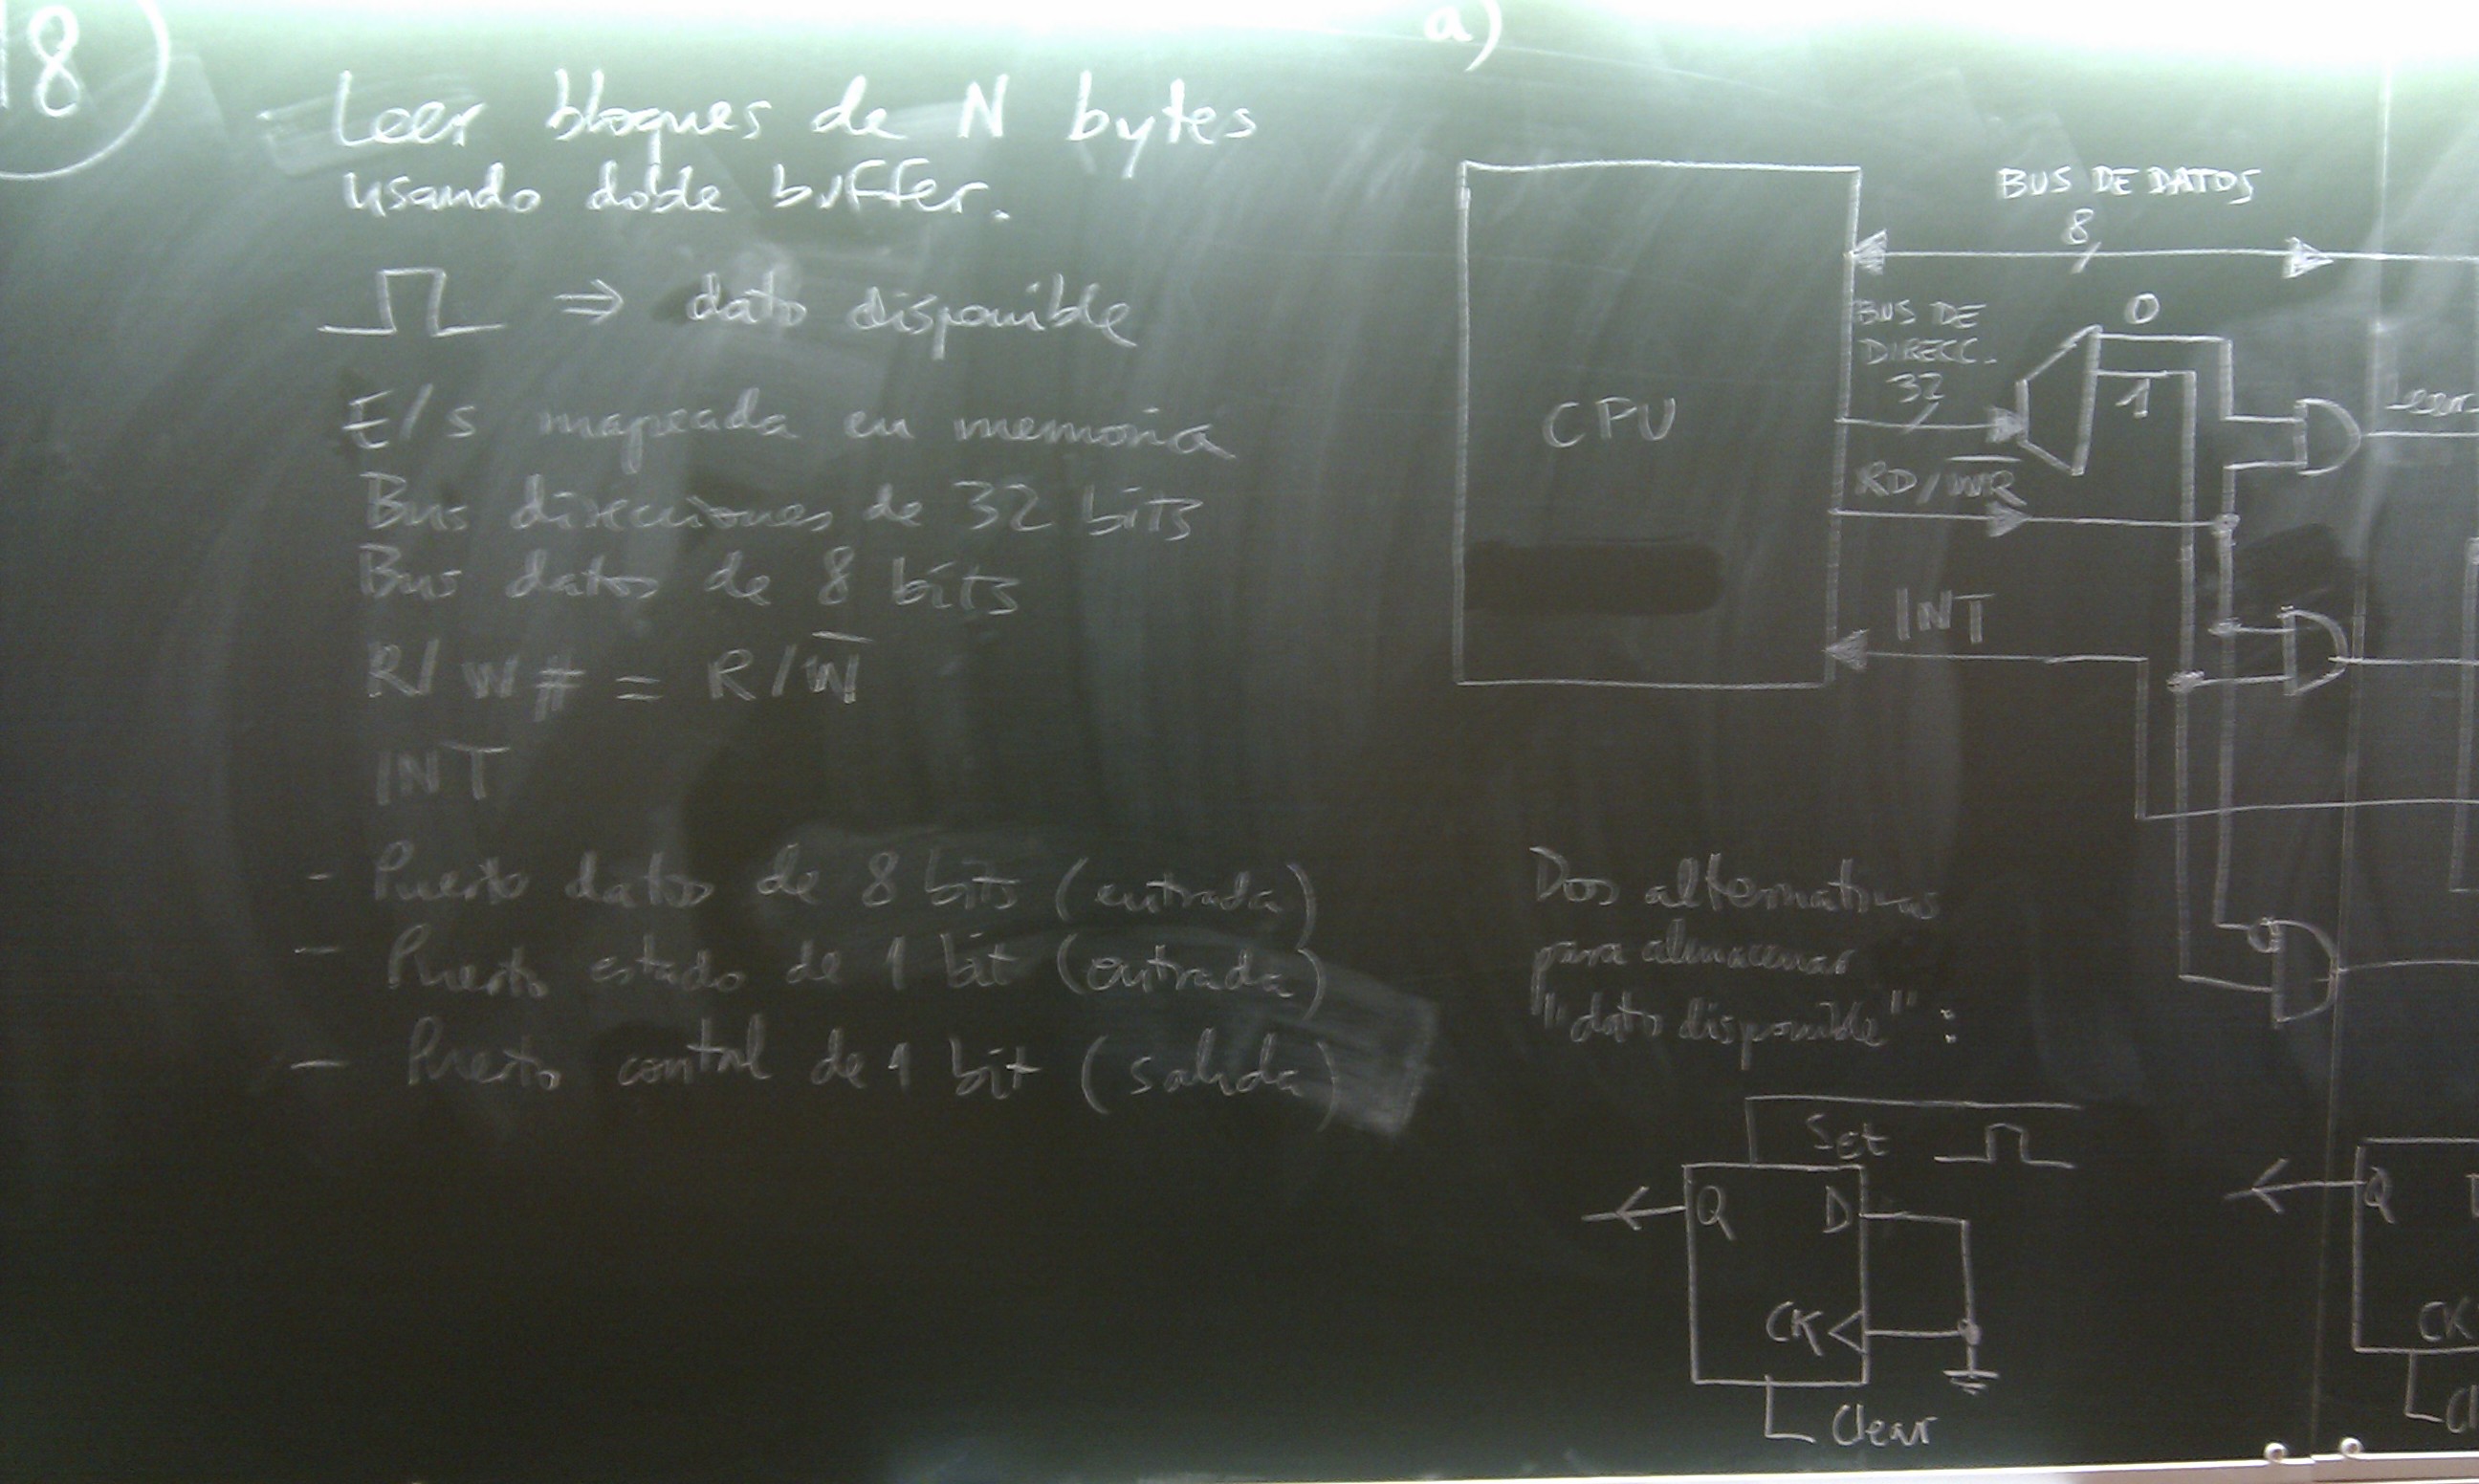 18
- Leer bloques de N bytes
usando doble buffer.
⇒ dato disponible
E/S mapeada en memoria
Bus direcciones de 32 bits
Bus datos de 8 bits
R/W# = R/W̅
INT
- Puerto datos de 8 bits (entrada)
- Puerto estado de 1 bit (entrada)
- Puerto control de 1 bit (salida)
a)
CPU
BUS DE DATOS
8
BUS DE
DIRECC.
32
0
1
Leer
RD/W̅R̅
INT
Dos alternativas
para almacenar
"dato disponible":
Set
Q D
CK
Clear
Q
CK
Cl